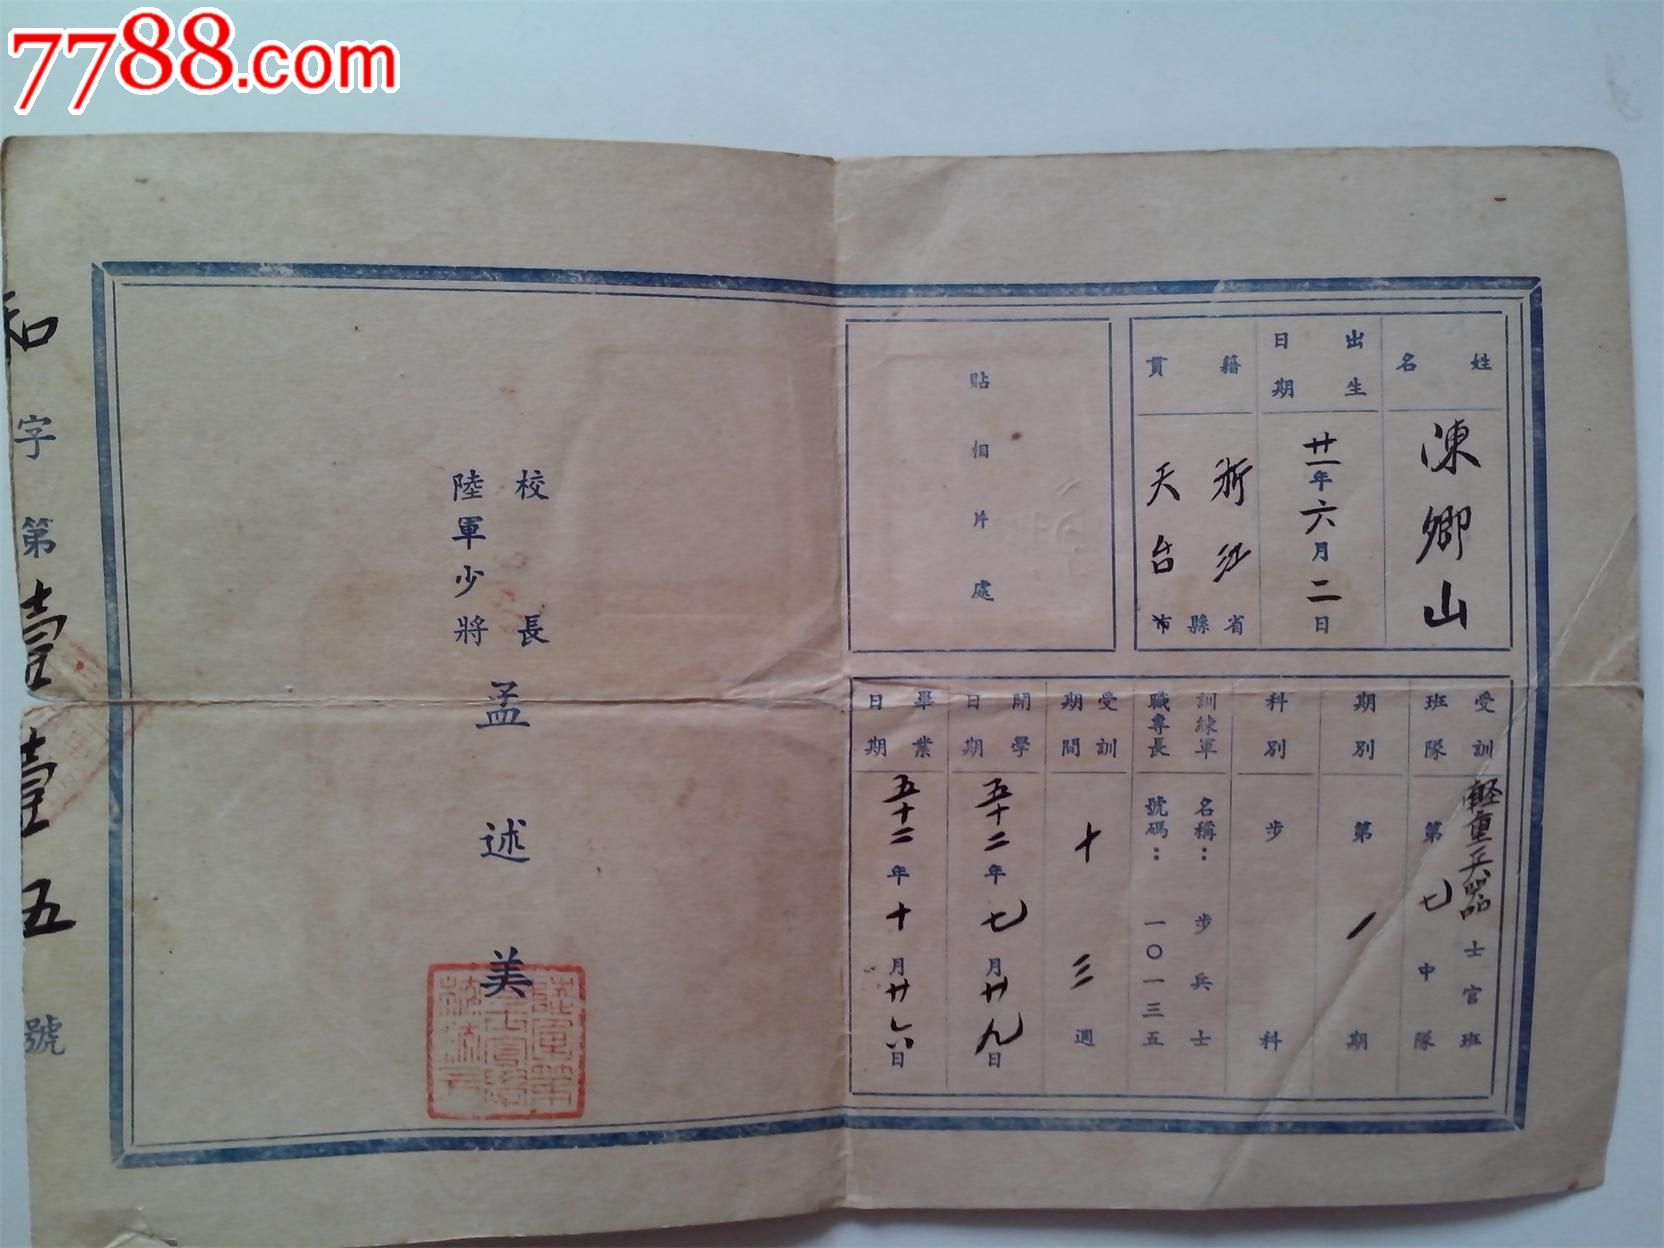 7788.com
姓名
陳卿山
出生日期
廿一年六月二日
籍貫
浙江省
天台縣市
貼相片處
受訓班隊
輕重兵器士官班
第七中隊
期別
第一期
科別
步科
訓練軍職專長
名稱：步兵士
號碼：一〇一三五
受訓期間
十三週
開學日期
五十二年七月廿九日
畢業日期
五十二年十月廿六日
校長
陸軍少將
孟述美
和字第壹壹五號